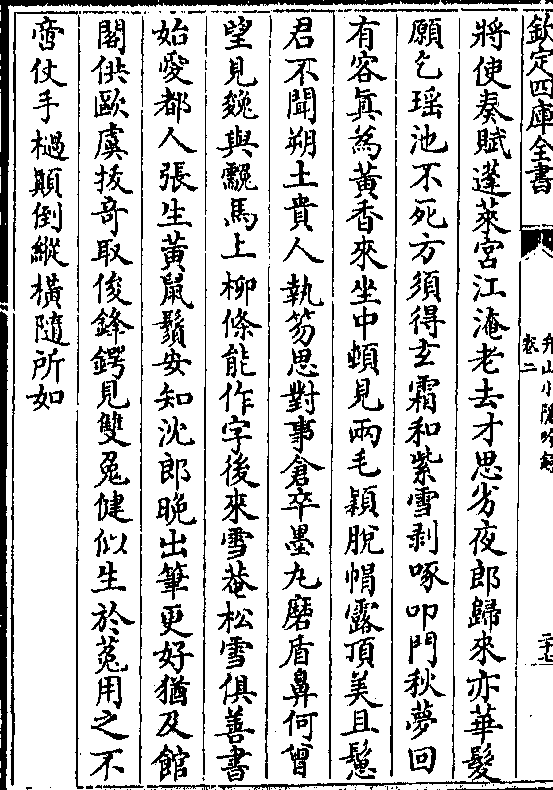 欽定四庫全書
弁山小隱吟録
卷二
二十七
將使奏賦蓬萊宮江淹老去才思劣夜郎歸來亦華髮
願乞瑶池不死方須得玄霜和紫雪剥啄叩門秋夢回
有客真為黃香來坐中頓見兩毛穎脫帽露頂美且鬈
君不聞朔土貴人執笏思對事倉卒墨丸磨盾鼻何曾
望見毚與䨲馬上柳條能作字後來雪菴松雪俱善書
始愛都人張生黃鼠鬚安知沈郎晚出筆更好猶及館
閣供歐虞拔奇取俊鋒鍔見雙兔健似生於菟用之不
啻仗手檛顛倒縱橫隨所如